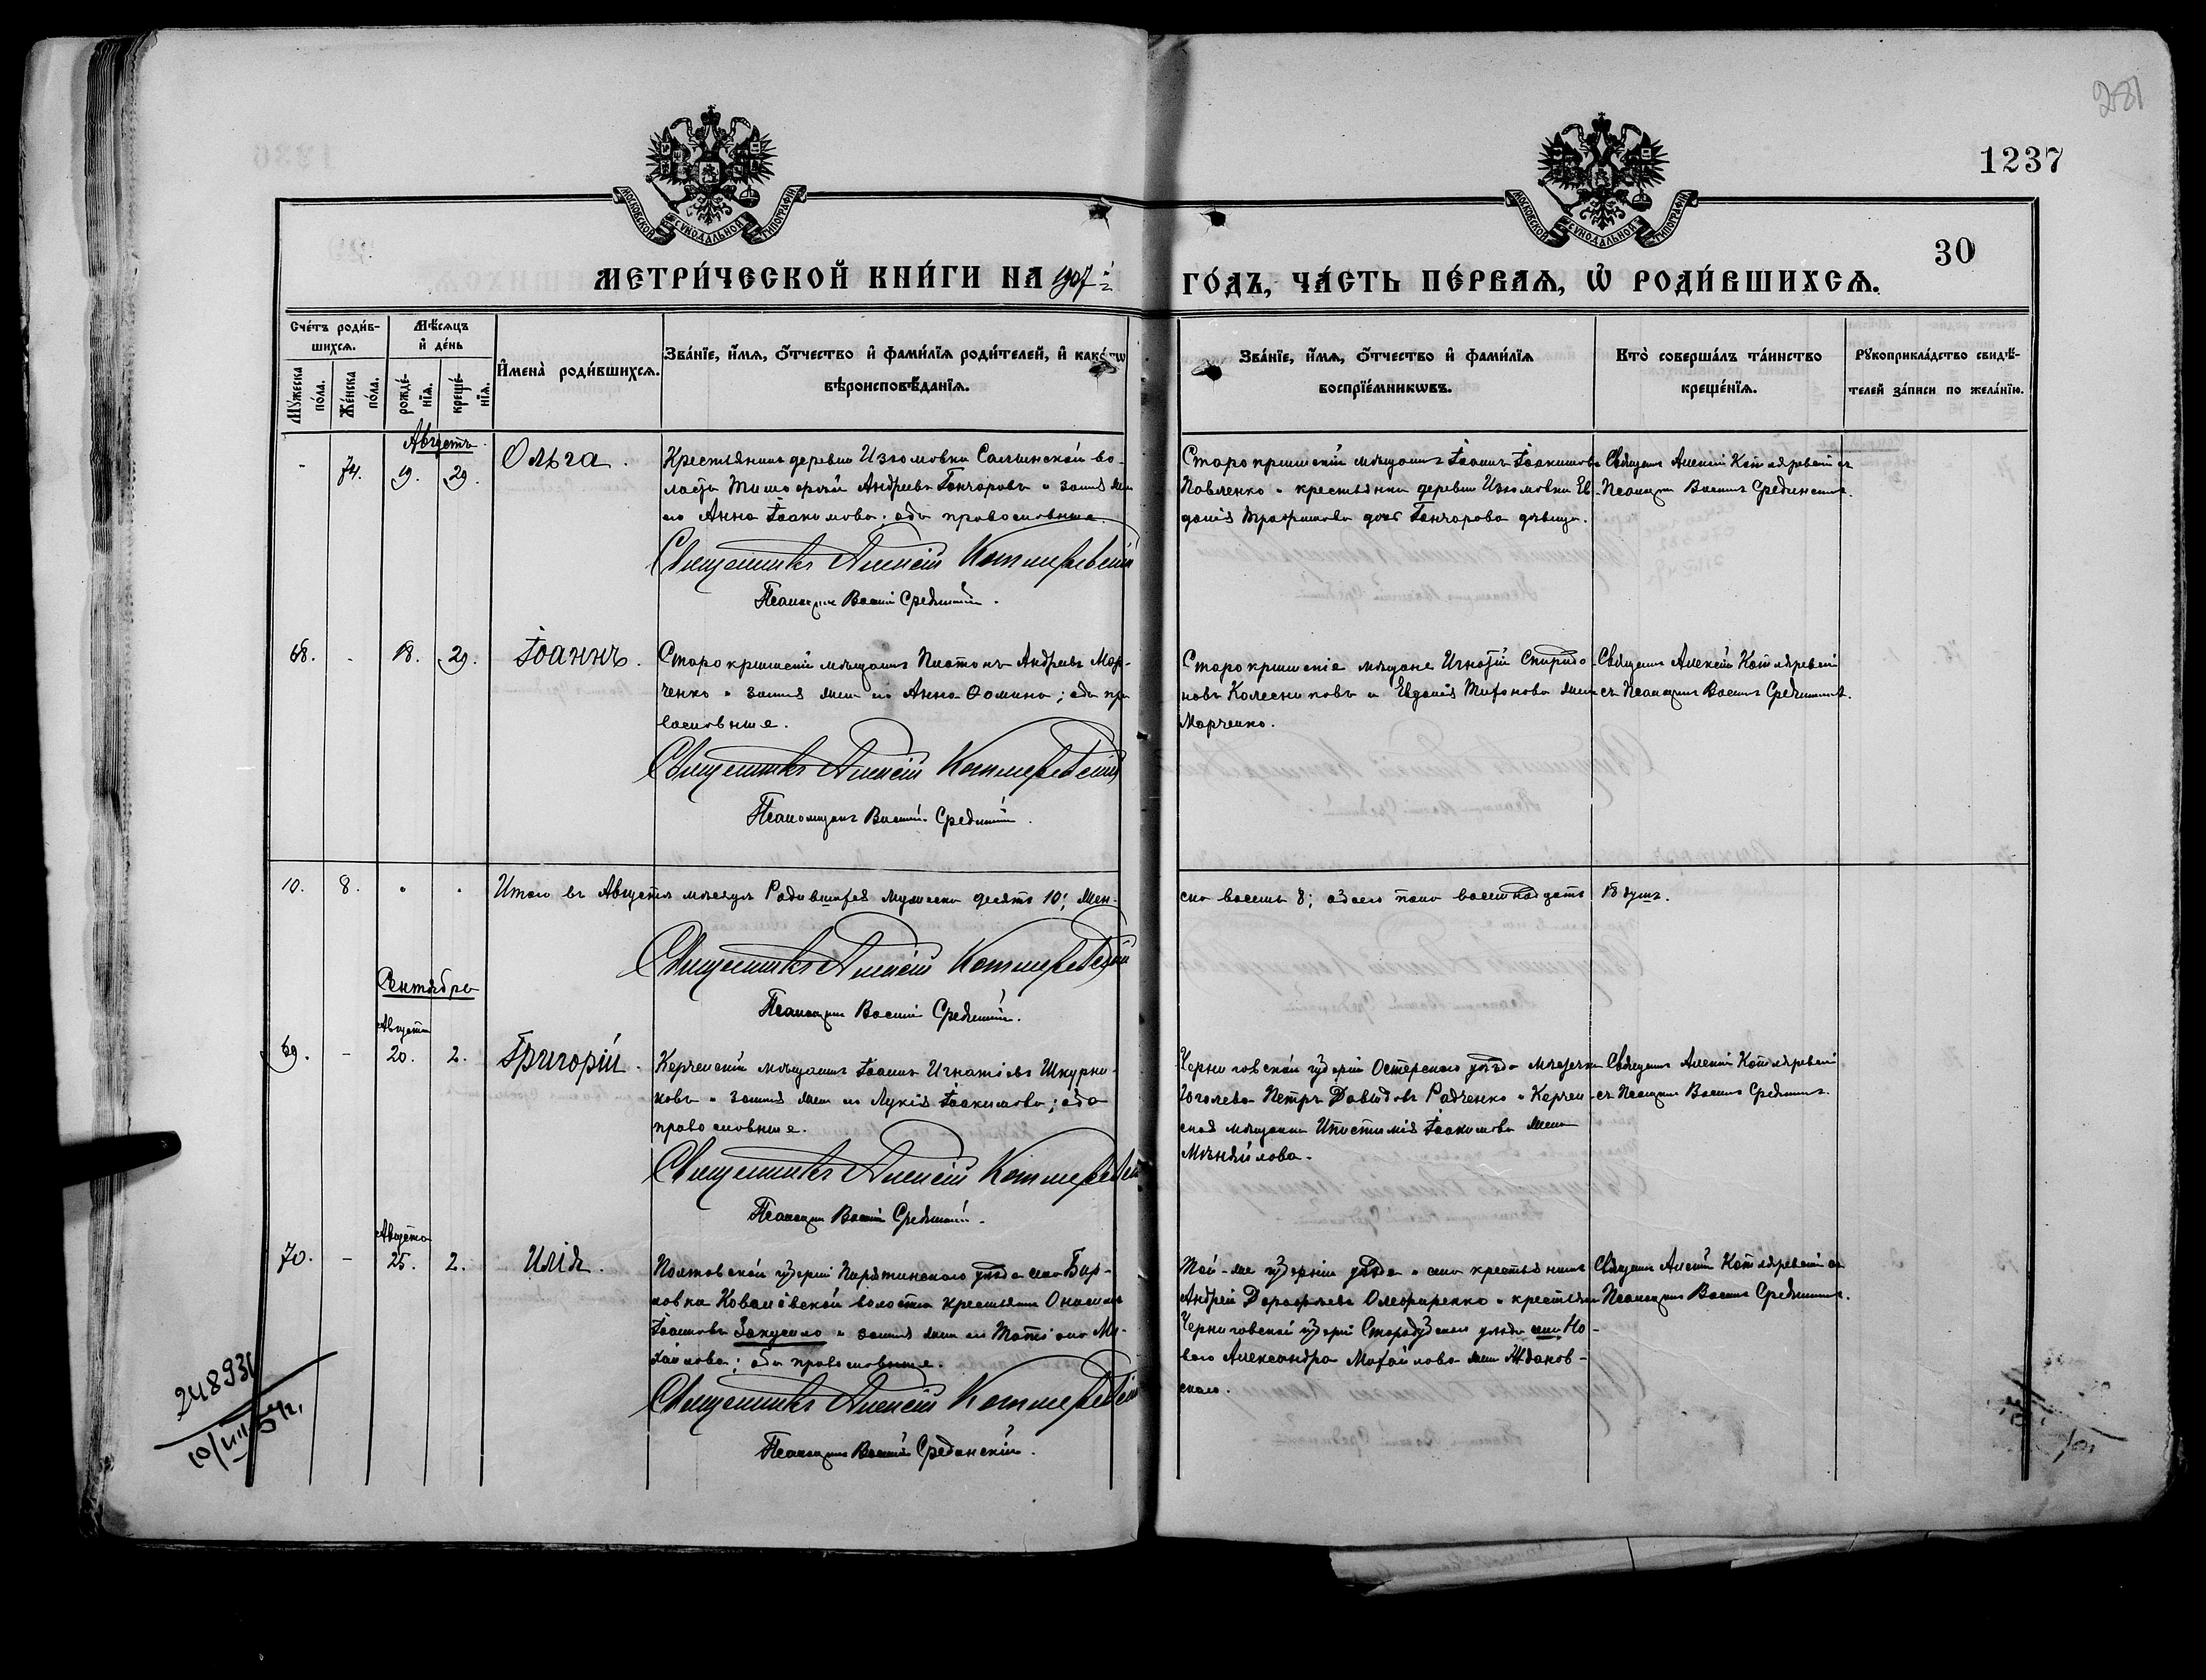 281
1237
30
МОСКОВСКОЙ СѴНОДАЛЬНОЙ ТИПОГРАФІИ
МОСКОВСКОЙ СѴНОДАЛЬНОЙ ТИПОГРАФІИ
МЕТРИ́ЧЕСКОЙ КНИ́ГИ НА 1907 й ГО́ДЪ, ЧА́СТЬ ПЕ́РВАѦ, Ѡ҆ РОДИ́ВШИХСѦ.
Сче́тъ роди́в-
шихсѧ.
Мꙋ́жеска по́ла.
Же́нска по́ла.
Мѣ́сѧцъ
и҆ де́нь
рожде́-
нїѧ.
креще́-
нїѧ.
И҆мена̀ роди́вшихсѧ.
Зва́нїе, и҆́мѧ, ѻ҆́тчество и҆ фами́лїѧ роди́телей, и҆ како́гѡ
вѣроисповѣ́данїѧ.
Зва́нїе, и҆́мѧ, ѻ҆́тчество и҆ фами́лїѧ
воспрїе́мникѡвъ.
Кто̀ соверша́лъ та́инство
креще́нїѧ.
Рꙋкоприкла́дство свидѣ́-
телей за́писи по жела́нїю.
Августъ
- 74. 9. 29. Ольга.
Крестьянинъ деревни Изюмовки Салынской во-
лости Тимофей Андреевъ Гончаровъ и законная жена
его Анна Іоакимова; оба православные.
Священникъ Алексій Котляревскій
Псаломщикъ Василій Срединскій.
Старокрымскій мѣщанинъ Іоаннъ Іоакимовъ
Павленко и крестьянка деревни Изюмовки Ев-
докія Трофимова дочь Гончарова дѣвица.
Священникъ Алексій Котляревскій съ
Псаломщик. Василіемъ Срединскимъ.
68. - 18. 29. Іоаннъ.
Старокрымскій мѣщанинъ Платонъ Андреевъ Мар-
ченко и законная жена его Анна Ѳомина; оба пра
вославные.
Священникъ Алексій Котляревскій
Псаломщикъ Василій Срединскій.
Старокрымскіе мѣщане Игнатій Спиридо-
новъ Колесниковъ и Евдокія Тихонова жена
Марченко.
Священникъ Алексій Котляревскій
съ Псаломщик. Василіемъ Срединскимъ.
10. 8. Итого въ Августѣ мѣсяцѣ Родившихся мужеска десять 10; жен-
ска восемь 8; обоего пола восемнадцать 18 душъ.
Священникъ Алексій Котляревскій
Псаломщикъ Василій Срединскій.
Сентябрь
Августа
69. - 20. 2. Григорій.
Керченскій мѣщанинъ Іоаннъ Игнатіевъ Шкурни-
ковъ и законная жена его Лукія Іоакимова; оба
православные.
Священникъ Алексій Котляревскій
Псаломщикъ Василій Срединскій.
Черниговской губерніи Остерскаго уѣзда Мѣстечка
Гоголева Петръ Давидовъ Радченко и Керчен-
ская мѣщанка Ипистимія Іоакимова жена
Священникъ Алексій Котляревскій
съ Псаломщик. Василіемъ Срединскимъ.
Августа
70. - 25. 2. Илія.
Полтавской губерніи Пирятинскаго уѣзда села Бир-
ловки Ковалёвской волости крестьянинъ
Іоанновъ Закусило и законная жена его Татіана Ми-
хайлова; оба православные.
Священникъ Алексій Котляревскій
Псаломщикъ Василій Срединскій.
Той-же губерніи уѣзда и села крестьянинъ
Андрей Дорофеевъ Олефиренко и крестьянка
Черниговской губерніи Стародубскаго уѣзда села Но-
ваго Александра Михайлова жена Ждановъ-
скаго.
Священникъ Алексій Котляревскій съ
Псаломщик. Василіемъ Срединскимъ.